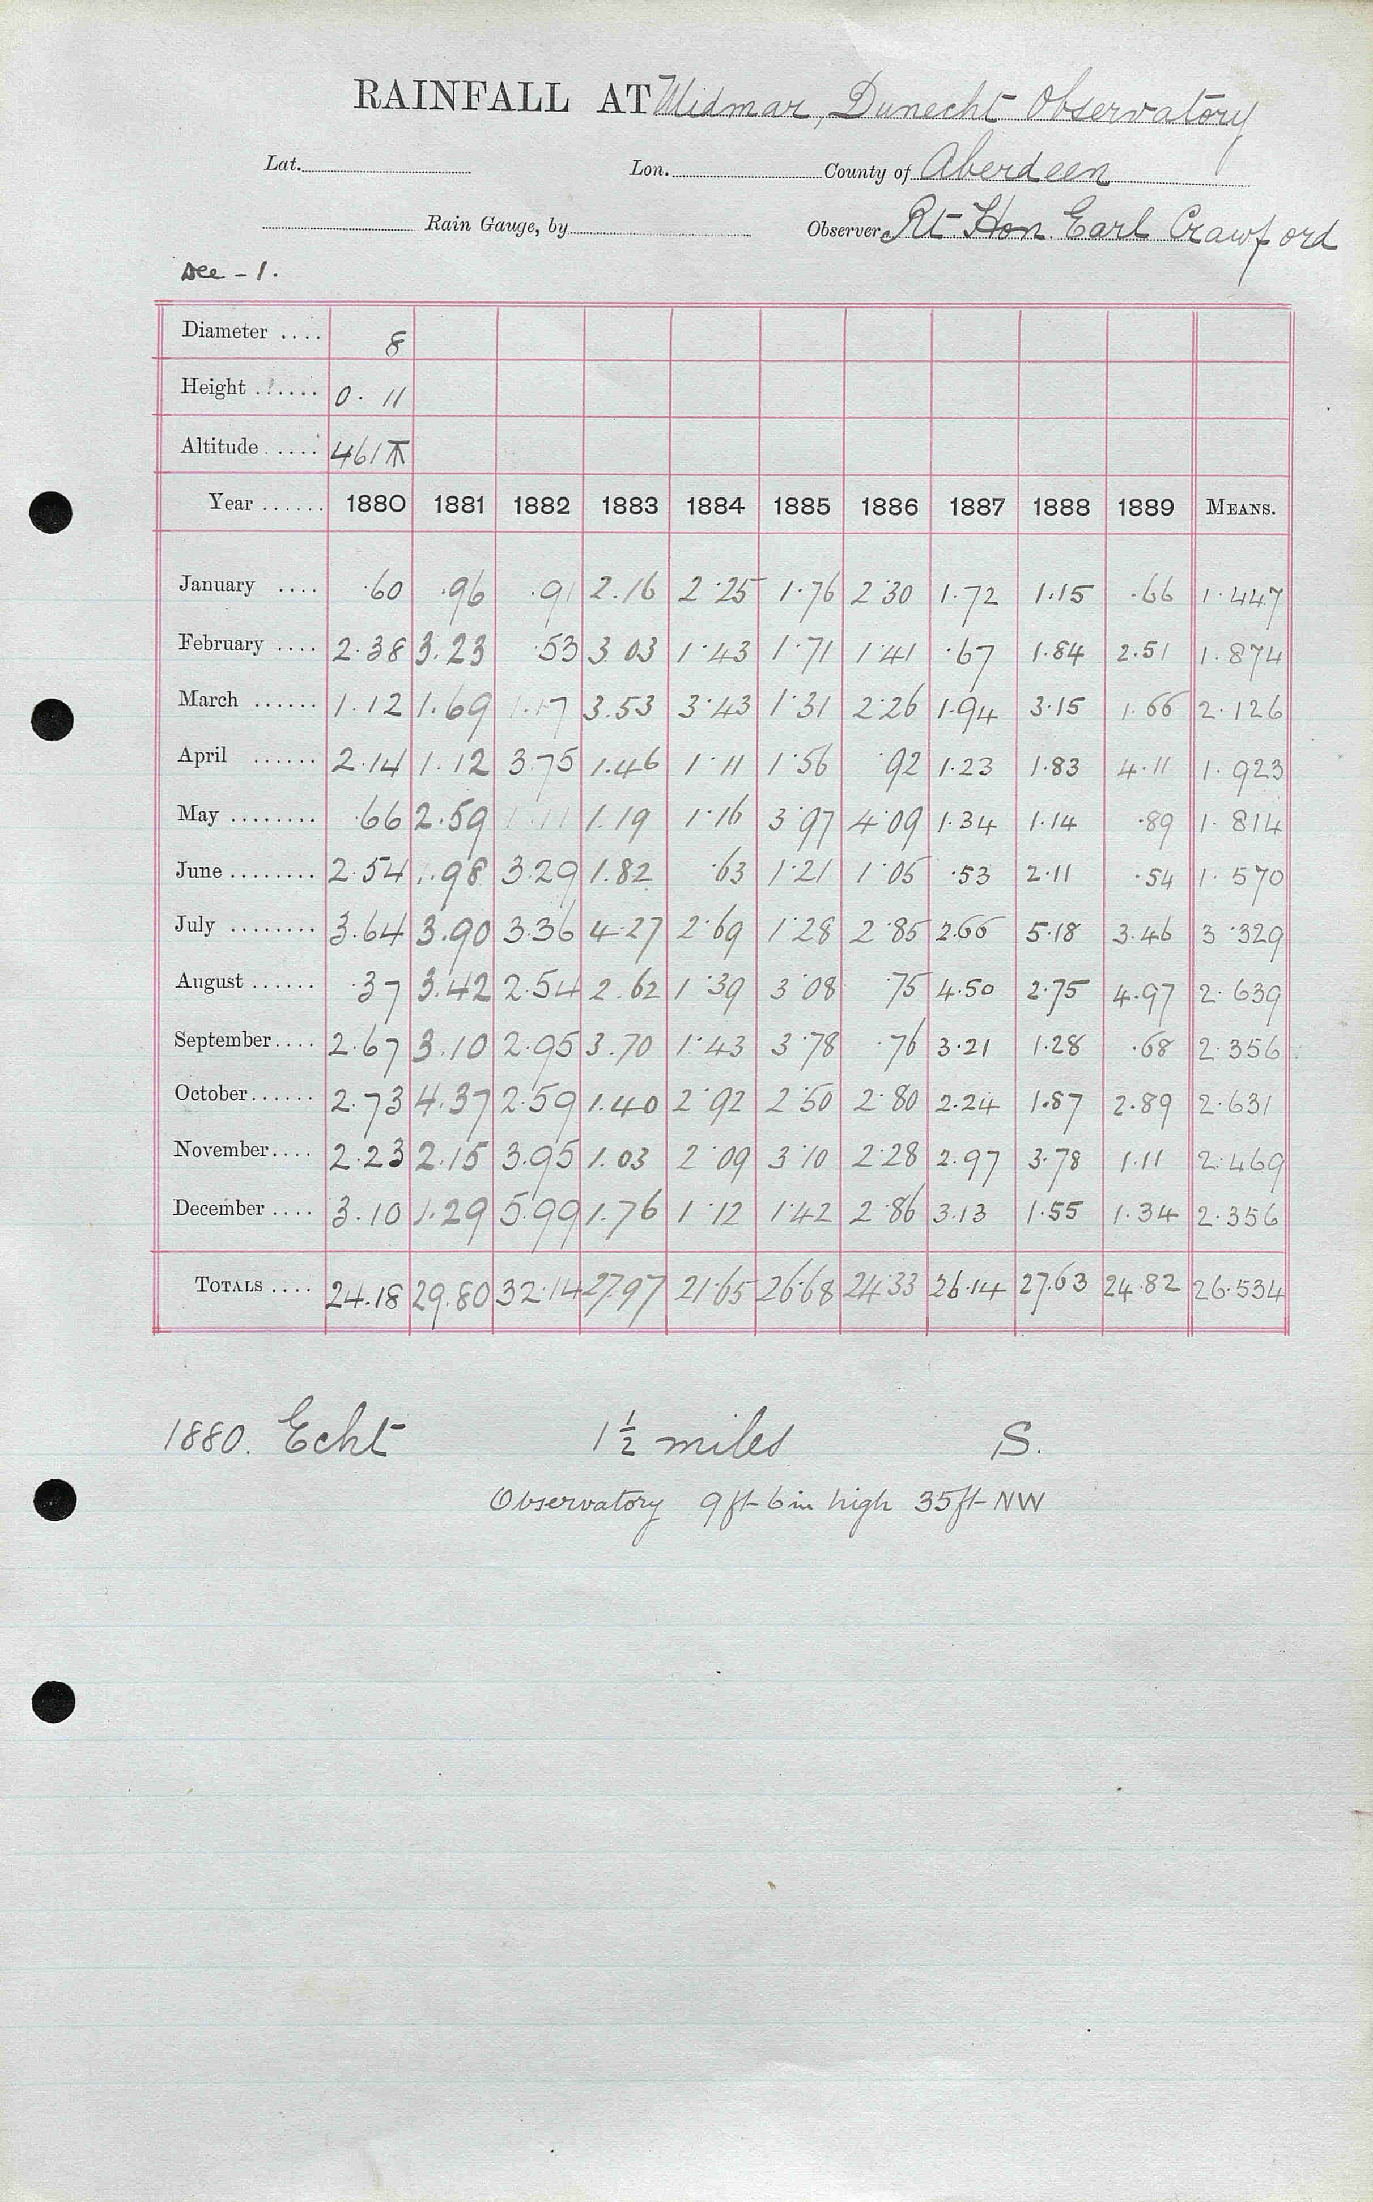 RAINFALL AT Midmar, Dunecht Observatory
Lat. Lon. County of Aberdeen
Rain Gauge, by Observer Rt Hon Earl Crawford
Dec - 1.
Diameter .... 8
Height ...... 0. 11
Altitude ..... 461
Year ...... 1880 1881 1882 1883 1884 1885 1886 1887 1888 1889 MEANS.
January .... .60 .96 .91 2.16 2.25 1.76 2.30 1.72 1.15 .66 1.447
February .... 2.38 3.23 .53 3.03 1.43 1.71 1.41 .67 1.84 2.51 1.874
March ...... 1.12 1.69 1.17 3.53 3.43 1.31 2.26 1.94 3.15 1.66 2.126
April ...... 2.14 1.12 3.75 1.46 1.11 1.56 .92 1.23 1.83 4.11 1.923
May ........ .66 2.59 1.11 1.19 1.16 3.97 4.09 1.34 1.14 .89 1.814
June ........ 2.54 1.98 3.29 1.82 .63 1.21 1.05 .53 2.11 .54 1.570
July ........ 3.64 3.90 3.36 4.27 2.69 1.28 2.85 2.66 5.18 3.46 3.329
August ...... .37 3.42 2.54 2.62 1.39 3.08 .75 4.50 2.75 4.97 2.639
September .... 2.67 3.10 2.95 3.70 1.43 3.78 .76 3.21 1.28 .68 2.356
October ...... 2.73 4.37 2.59 1.40 2.92 2.50 2.80 2.24 1.87 2.89 2.631
November .... 2.23 2.15 3.95 1.03 2.09 3.10 2.28 2.97 3.78 1.11 2.469
December .... 3.10 1.29 5.99 1.76 1.12 1.42 2.86 3.13 1.55 1.34 2.356
TOTALS .... 24.18 29.80 32.14 27.97 21.65 26.68 24.33 26.14 27.63 24.82 26.534
1880. Echt 1½ miles S.
Observatory 9 ft 6 in high 35 ft NW